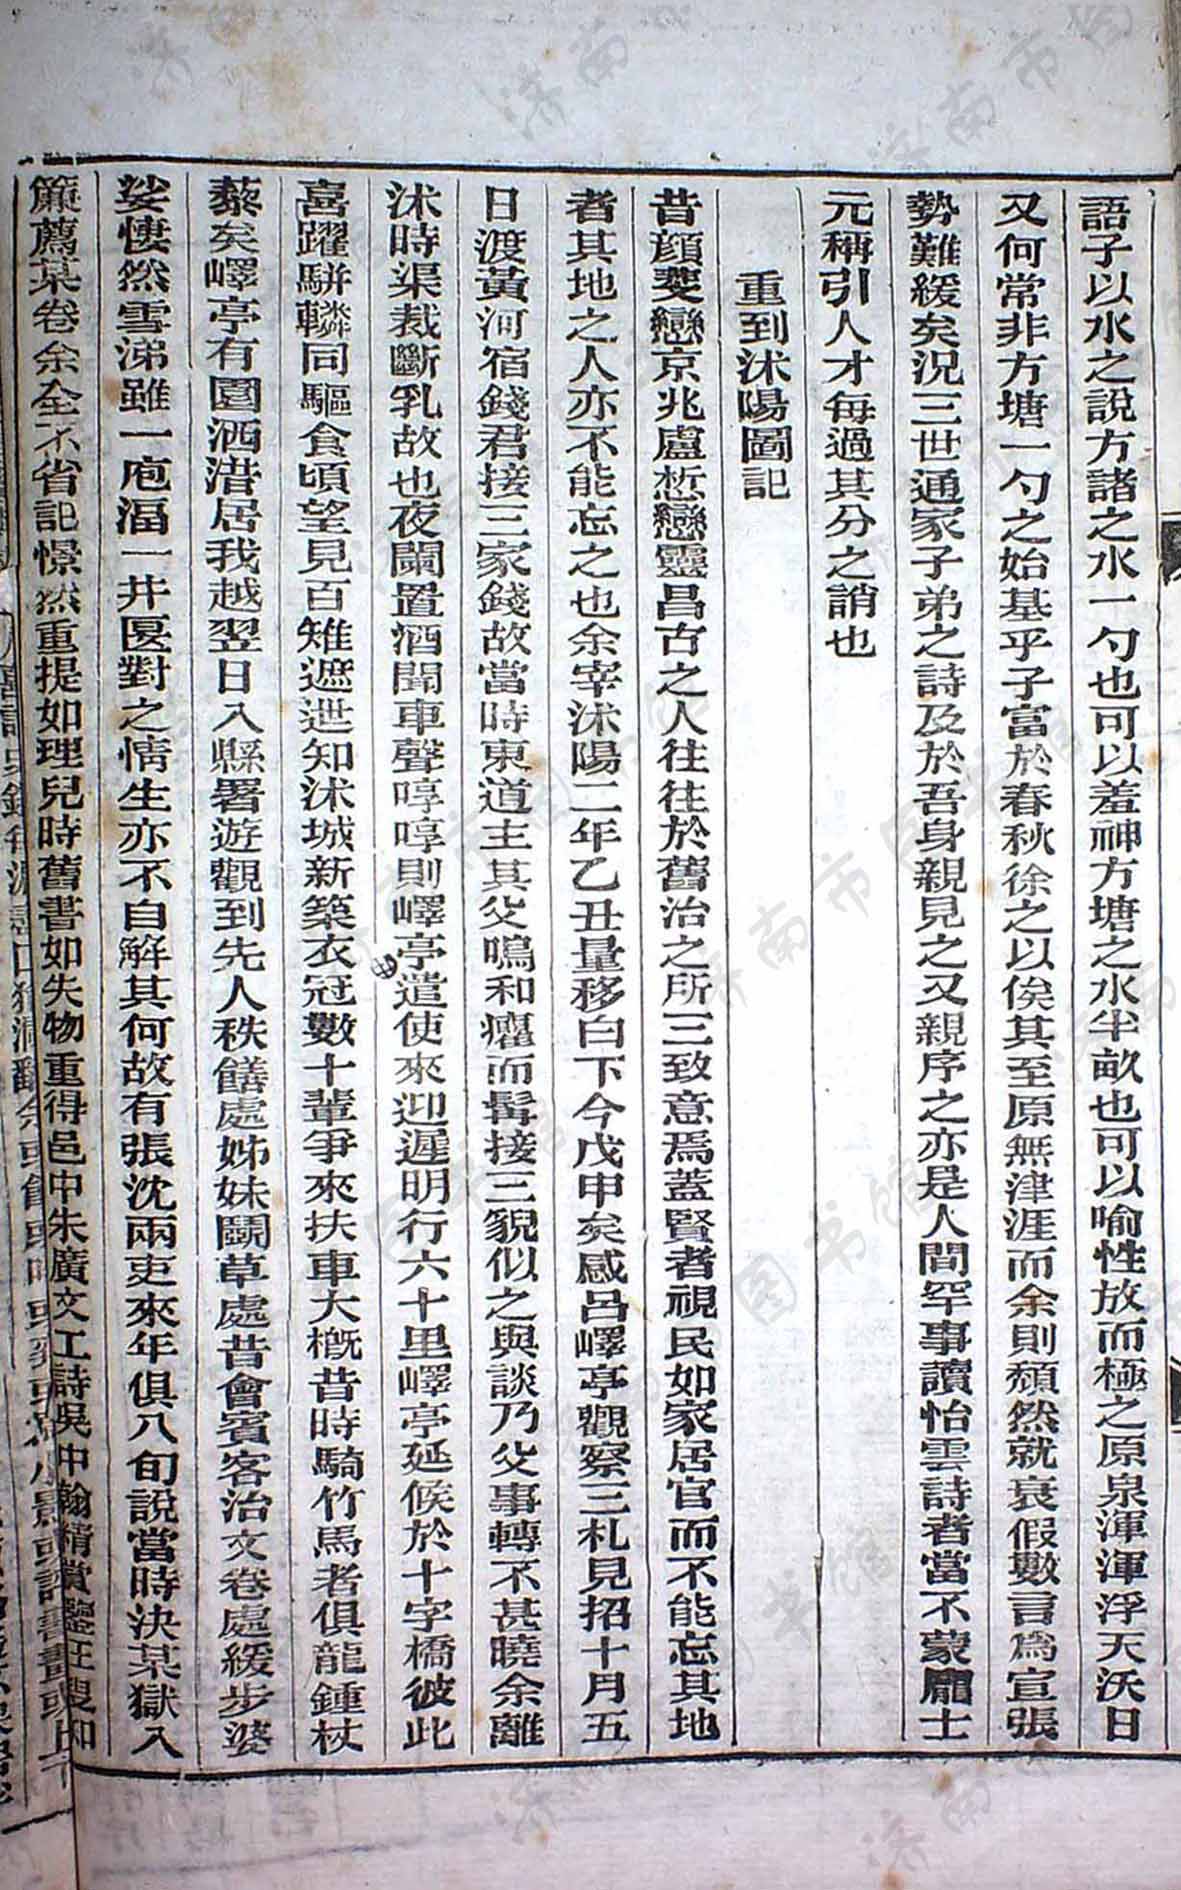 語子以水之說方諸之水一勺也可以羞神方塘之水半畝也可以喻性放而極之原泉渾渾浮天沃日
又何常非方塘一勺之始基乎子富於春秋徐之以俟其至原無津涯而余則頹然就衰假數言為宣張
勢難緩矣況三世通家子弟之詩及於吾身親見之又親序之亦是人間罕事讀怡雲詩者當不蒙龐士
元稱引人才每過其分之誚也
重到沭陽圖記
昔顏斐戀京兆盧悊戀靈昌古之人往往於舊治之所三致意焉蓋賢者視民如家居官而不能忘其地
者其地之人亦不能忘之也余宰沭陽二年乙丑量移白下今戊申矣感呂嶧亭觀察三札見招十月五
日渡黃河宿錢君接三家錢故當時東道主其父鳴和癯而髯接三貌似之與談乃父事轉不甚曉余離
沭時渠裁斷乳故也夜闌置酒聞車聲哼哼則嶧亭遣使來迎遲明行六十里嶧亭延候於十字橋彼此
喜躍駢轔同驅食頃望見百雉遮迣知沭城新築衣冠數十輩爭來扶車大概昔時騎竹馬者俱龍鍾杖
藜矣嶧亭有園洒潽居我越翌日入縣署遊觀到先人秩饍處姊妹鬭草處昔會賓客治文卷處緩步婆
娑悽然雪涕雖一庖湢一井匽對之情生亦不自解其何故有張沈兩吏來年俱八旬說當時決某獄入
簾薦某卷余全不省記憬然重提如理兒時舊書如失物重得邑中朱廣文工詩吳中翰精賞鑒汪叟知